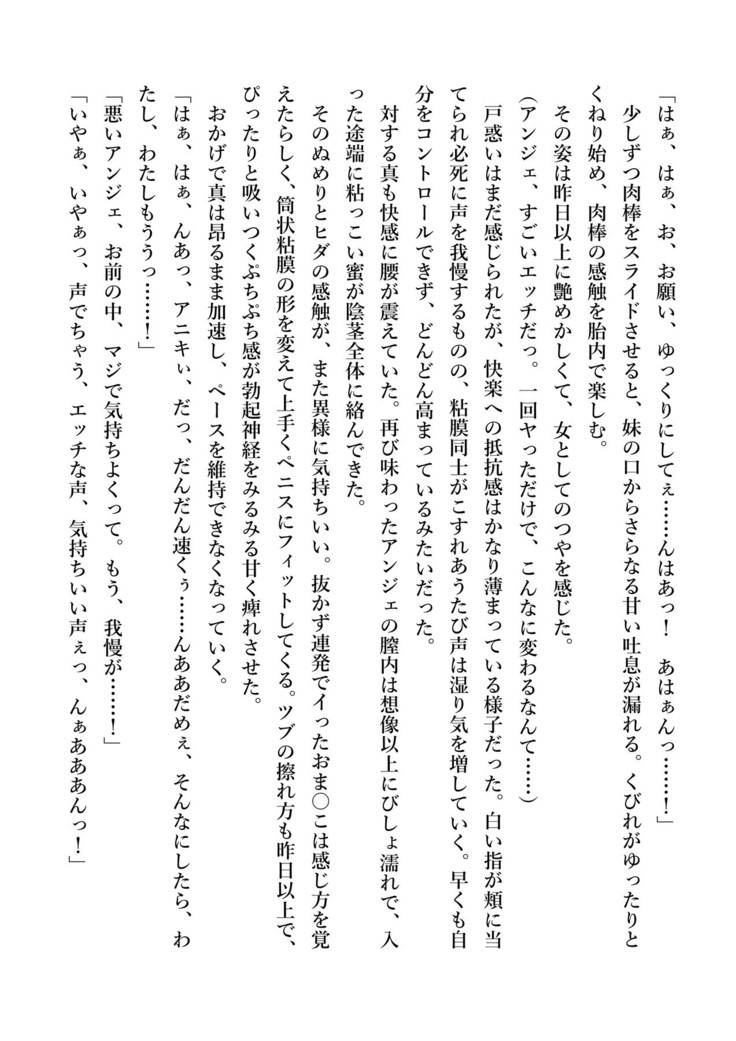 「はぁ、はぁ、お、お願い、ゆっくりにしてぇ……んはあっ！　あはぁんっ……！」
　少しずつ肉棒をスライドさせると、妹の口からさらなる甘い吐息が漏れる。くびれがゆったりと
くねり始め、肉棒の感触を胎内で楽しむ。
　その姿は昨日以上に艶めかしくて、女としてのつやを感じた。
（アンジェ、すごいエッチだっ。一回ヤっただけで、こんなに変わるなんて……）
　戸惑いはまだ感じられたが、快楽への抵抗感はかなり薄まっている様子だった。白い指が頬に当
てられ必死に声を我慢するものの、粘膜同士がこすれあうたび声は湿り気を増していく。早くも自
分をコントロールできず、どんどん高まっているみたいだった。
　対する真も快感に腰が震えていた。再び味わったアンジェの膣内は想像以上にびしょ濡れで、入
った途端に粘っこい蜜が陰茎全体に絡んできた。
　そのぬめりとヒダの感触が、また異様に気持ちいい。抜かず連発でイったおま〇こは感じ方を覚
えたらしく、筒状粘膜の形を変えて上手くペニスにフィットしてくる。ツブの擦れ方も昨日以上で、
ぴったりと吸いつくぷちぷち感が勃起神経をみるみる甘く痺れさせた。
　おかげで真は昂るまま加速し、ペースを維持できなくなっていく。
「はぁ、はぁ、んあっ、アニキぃ、だっ、だんだん速くぅ……んああだめぇ、そんなにしたら、わ
たし、わたしもううっ……！」
「悪いアンジェ、お前の中、マジで気持ちよくって。もう、我慢が……！」
「いやぁ、いやぁっ、声でちゃう、エッチな声、気持ちいい声ぇっ、んぁあああんっ！」